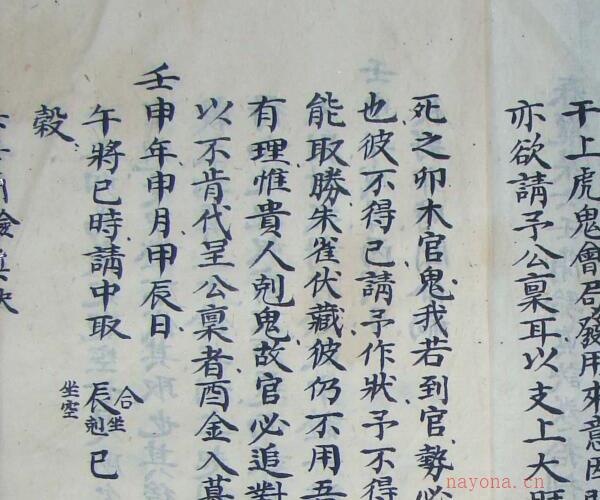 干上虎鬼會合發用來意因
亦欲請予公稟耳以支上大
死之卯木官鬼我若到官勢必
也彼不得已請予作狀予不得
能取勝朱雀伏藏彼仍不用吾
有理惟貴人剋鬼故官必追對
以不肯代呈公稟者酉金入墓
壬申年申月甲辰日
午將巳時請中取
合坐
辰剋巳
坐空
穀
nayona.cn